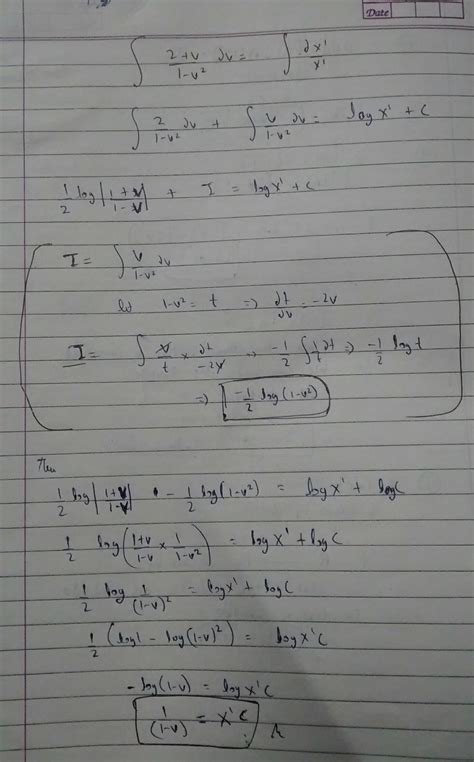 Date
∫ (2+v)/(1-v²) ∂v = ∫ ∂x'/x'
∫ 2/(1-v²) ∂v + ∫ v/(1-v²) ∂v = log x' + C
1/2 log |(1+v)/(1-v)| + I = log x' + c
I = ∫ v/(1-v²) ∂v
let 1-v² = t => ∂t/∂v = -2v
I = ∫ v/t × ∂t/-2v → -1/2 ∫ 1/t ∂t => -1/2 log t
=> -1/2 log (1-v²)
Then
1/2 log |(1+v)/(1-v)| - 1/2 log (1-v²) = log x' + log C
1/2 log ((1+v)/(1-v) × 1/(1-v²)) = log x' + log C
1/2 log 1/(1-v)² = log x' + log C
1/2 (log 1 - log (1-v)²) = log x'C
- log (1-v) = log x'C
1/(1-v) = x'C